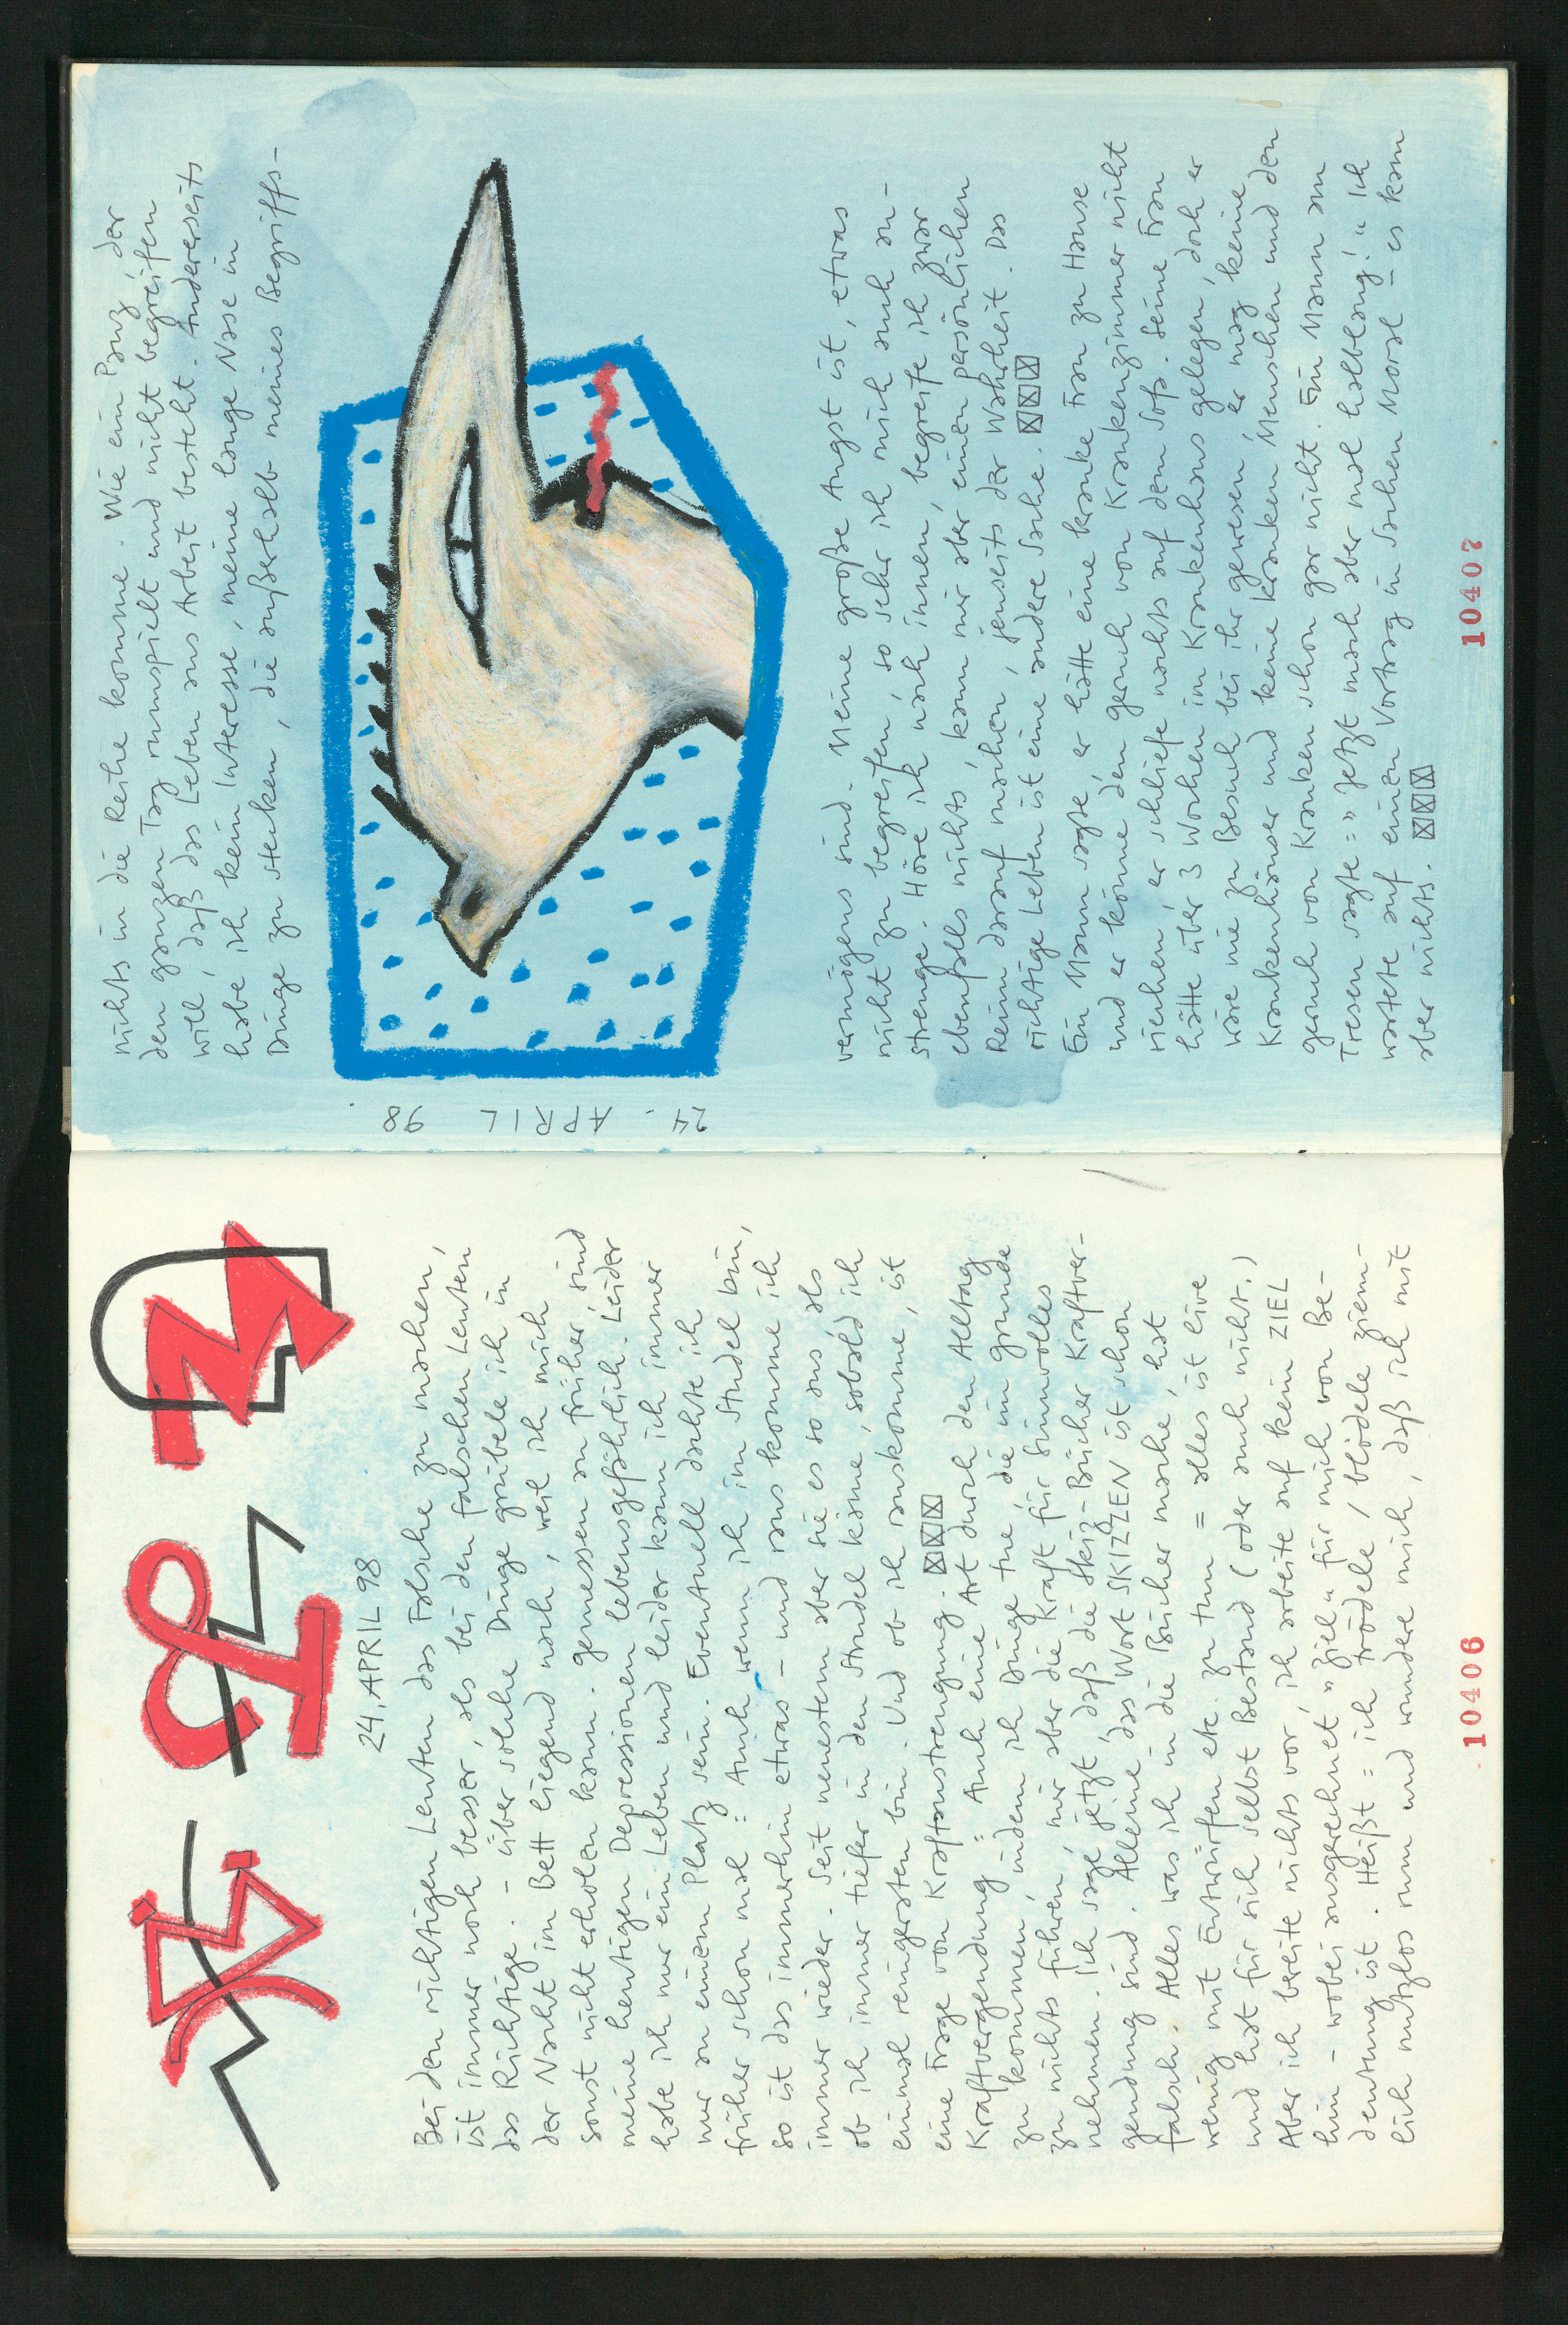 24. APRIL 98
Bei den richtigen Leuten das Falsche zu machen,
ist immer noch besser, als bei den falschen Leuten
das Richtige. – über solche Dinge grübele ich in
der Nacht im Bett liegend nach, weil ich mich
sonst nicht erholen kann. Gemessen an früher, sind
meine heutigen Depressionen lebensgefährlich. Leider
habe ich nur ein Leben und leider kann ich immer
nur an einem Platz sein. Eventuell dachte ich
früher schon mal = Auch wenn ich im Strudel bin,
so ist das immerhin etwas – und raus komme ich
immer wieder. Seit neuestem aber sieht es so aus, als
ob ich immer tiefer in den Strudel käme, sobald ich
einmal reingeraten bin. Und ob ich rauskomme, ist
eine Frage von Kraftanstrengung. ☒☒☒
Kraftvergendung = Auch eine Art durch den Alltag
zu kommen, indem ich Dinge tue, die im Grunde
zu nichts führen, mir aber die Kraft für Sinnvolles
nehmen. Ich sage jetzt, daß die Skiz-Bücher Kraftver-
gendung sind. Alleine das Wort SKIZZEN ist schon
falsch. Alles was ich in die Bücher mache, hat
wenig mit Entwürfen etc. zu tun = alles ist live
und hat für sich selbst Bestand (oder auch nicht.)
Aber ich bereite nichts vor, ich arbeite auf kein ZIEL
hin – wobei ausgerechnet „Ziel“ für mich von Be-
deutung ist. Heißt = ich trödele / blödele ziem-
lich nutzlos rum und wundere mich, daß ich mit
10406
nichts in die Reihe komme. Wie ein Panz, der
den ganzen Tag rumspielt und nicht begreifen
will, daß das Leben aus Arbeit besteht. Andererseits
habe ich kein Interesse, meine lange Nase in
Dinge zu stecken, die außerhalb meines Begriffs-
24. APRIL 98
vermögens sind. Meine große Angst ist, etwas
nicht zu begreifen, so sehr ich mich auch an-
strenge. Höre ich nach innen, begreife ich zwar
ebenfalls nichts, kann mir aber einen persönlichen
Reim darauf machen, jenseits der Wahrheit. Das
richtige Leben ist eine andere Sache. ☒☒☒
Ein Mann sagte, er hätte eine kranke Frau zu Hause
und er könne den Geruch von Krankenzimmer nicht
riechen, er schliefe nachts auf dem Sofa. Seine Frau
hätte über 3 Wochen im Krankenhaus gelegen, doch er
wäre nie zu Besuch bei ihr gewesen, er mag keine
Krankenhäuser und keine kranken Menschen und den
Geruch von Kranken schon gar nicht. Ein Mann am
Tresen sagte = „Jetzt mach aber mal halblang!“ Ich
wartete auf einen Vortrag in Sachen Moral – es kam
aber nichts. ☒☒☒
10407